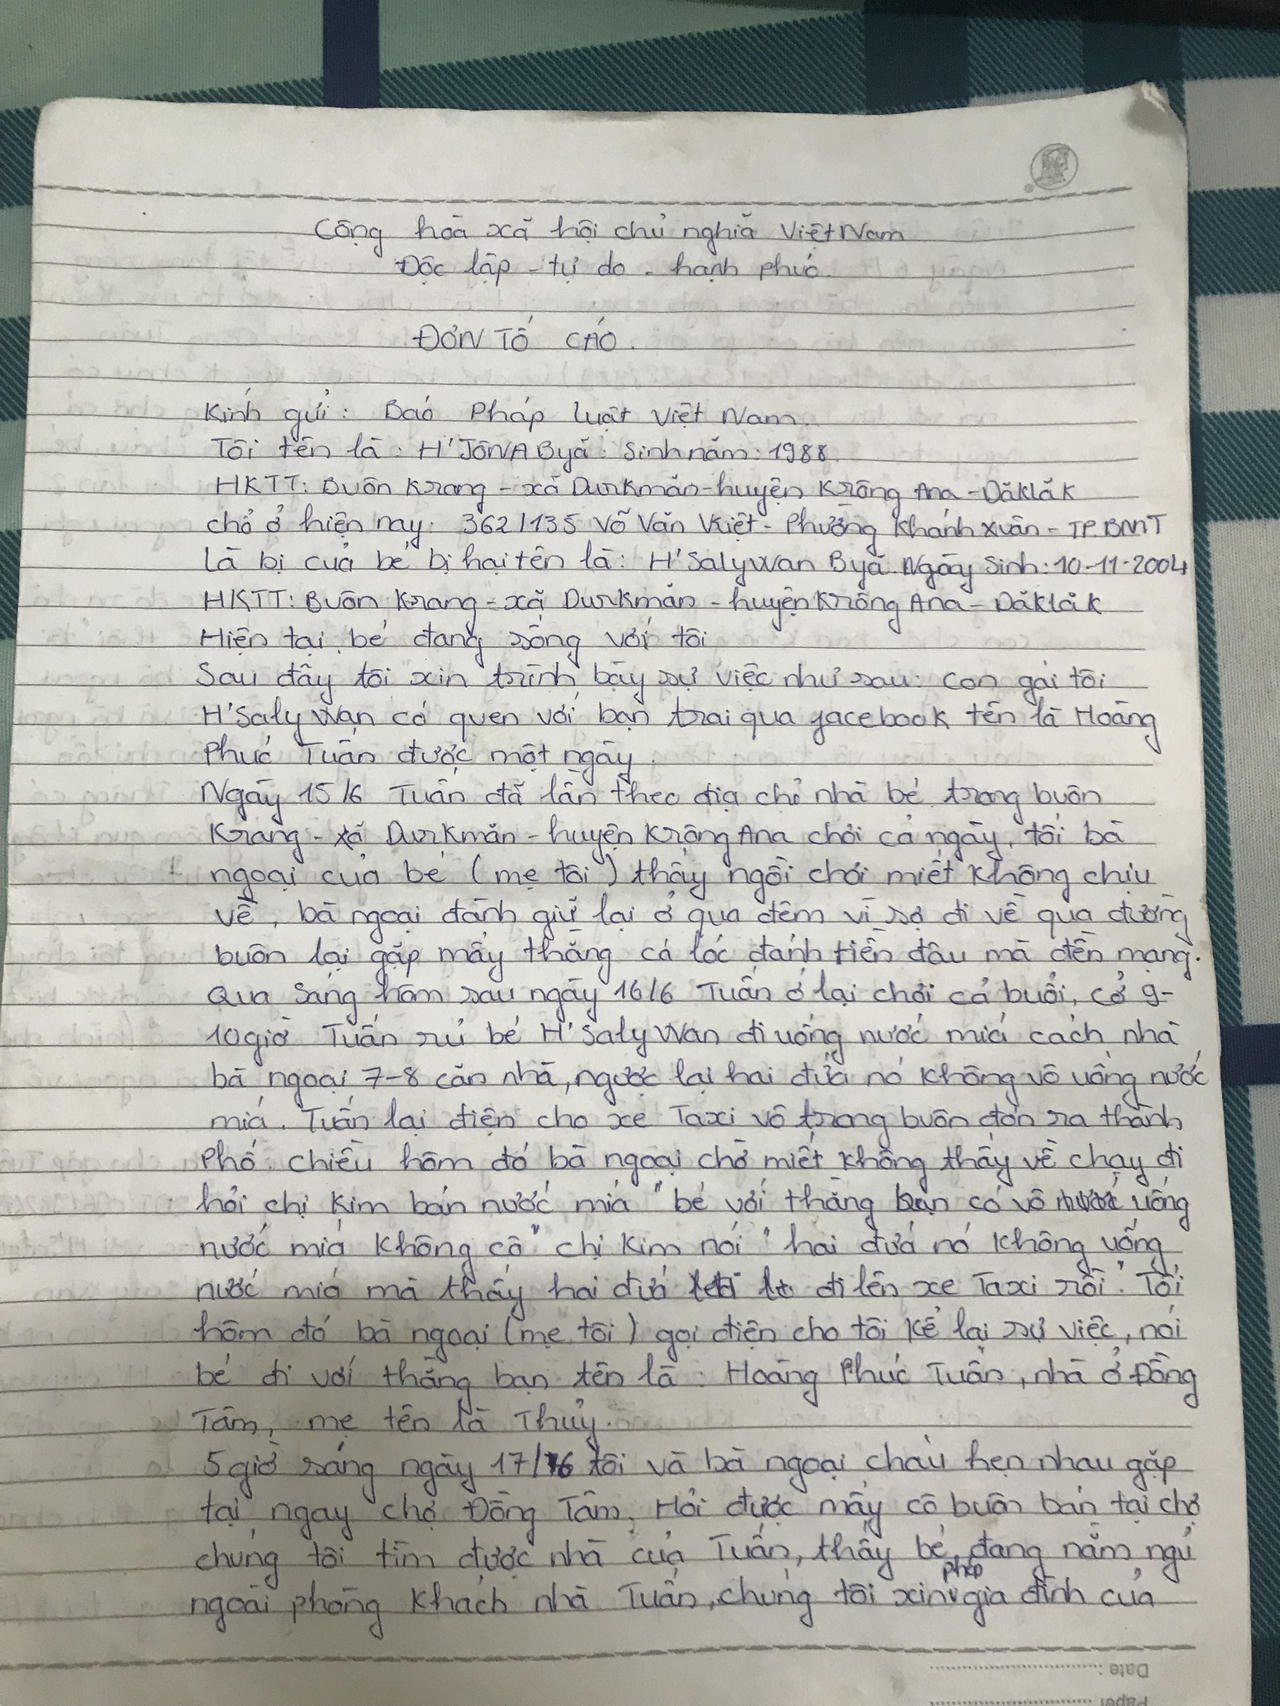 Cộng hoà xã hội chủ nghĩa Việt Nam
Độc lập - tự do - hạnh phúc.
ĐƠN TỐ CÁO.
Kính gửi: Báo Pháp luật Việt Nam.
Tôi tên là: H'JÔNA Byă: Sinh năm: 1988.
HKTT: Buôn Krang - xã Durkmăn - huyện Krông Ana - Dăklăk
chỗ ở hiện nay: 362/135 Võ Văn Kiệt - Phường Khánh Xuân - TP. BMT
Là bị của bé bị hại tên là: H'Salywan Byă. Ngày Sinh: 10-11-2004
HKTT: Buôn Krang - xã Durkmăn - huyện Krông Ana - Dăklăk
Hiện tại bé đang sống với tôi
Sau đây tôi xin trình bày sự việc như sau: con gái tôi
H'Saly Wan có quen với bạn trai qua facebook tên là Hoàng
Phúc Tuấn được một ngày.
Ngày 15/6 Tuấn đã lần theo địa chỉ nhà bé trong buôn
Krang - xã Durkmăn - huyện Krông Ana chơi cả ngày, tối bà
ngoại của bé (mẹ tôi) thấy ngồi chơi miết không chịu
về, bà ngoại đành giữ lại ở qua đêm vì sợ đi về qua đường
buôn lại gặp mấy thằng cá lóc đánh tiền đâu mà đền mạng.
Qua sáng hôm sau ngày 16/6 Tuấn ở lại chơi cả buổi, cở 9-
10 giờ Tuấn rủ bé H'Saly Wan đi uống nước mía cách nhà
bà ngoại 7-8 căn nhà, ngược lại hai đứa nó không vô uống nước
mía. Tuấn lại điện cho xe Taxi vô trong buôn đón ra thành
Phố. chiều hôm đó bà ngoại chờ miết không thấy về chạy đi
hỏi chị Kim bán nước mía "bé với thằng bạn có vô uống
nước mía không cô" chị Kim nói "hai đứa nó không uống
nước mía mà thấy hai đứa đi lên xe Taxi rồi". Tối
hôm đó bà ngoại (mẹ tôi) gọi điện cho tôi kể lại sự việc, nói
bé đi với thằng bạn tên là: Hoàng Phúc Tuấn, nhà ở Đồng
Tâm, mẹ tên là Thuỷ.
5 giờ sáng ngày 17/6 tôi và bà ngoại cháu hẹn nhau gặp
tại ngay chợ Đồng Tâm. Hỏi được mấy cô buôn bán tại chợ
chúng tôi tìm được nhà của Tuấn, thấy bé đang nằm ngủ
ngoài phòng khách nhà Tuấn, chúng tôi xin phép gia đình của
Date :
Paper